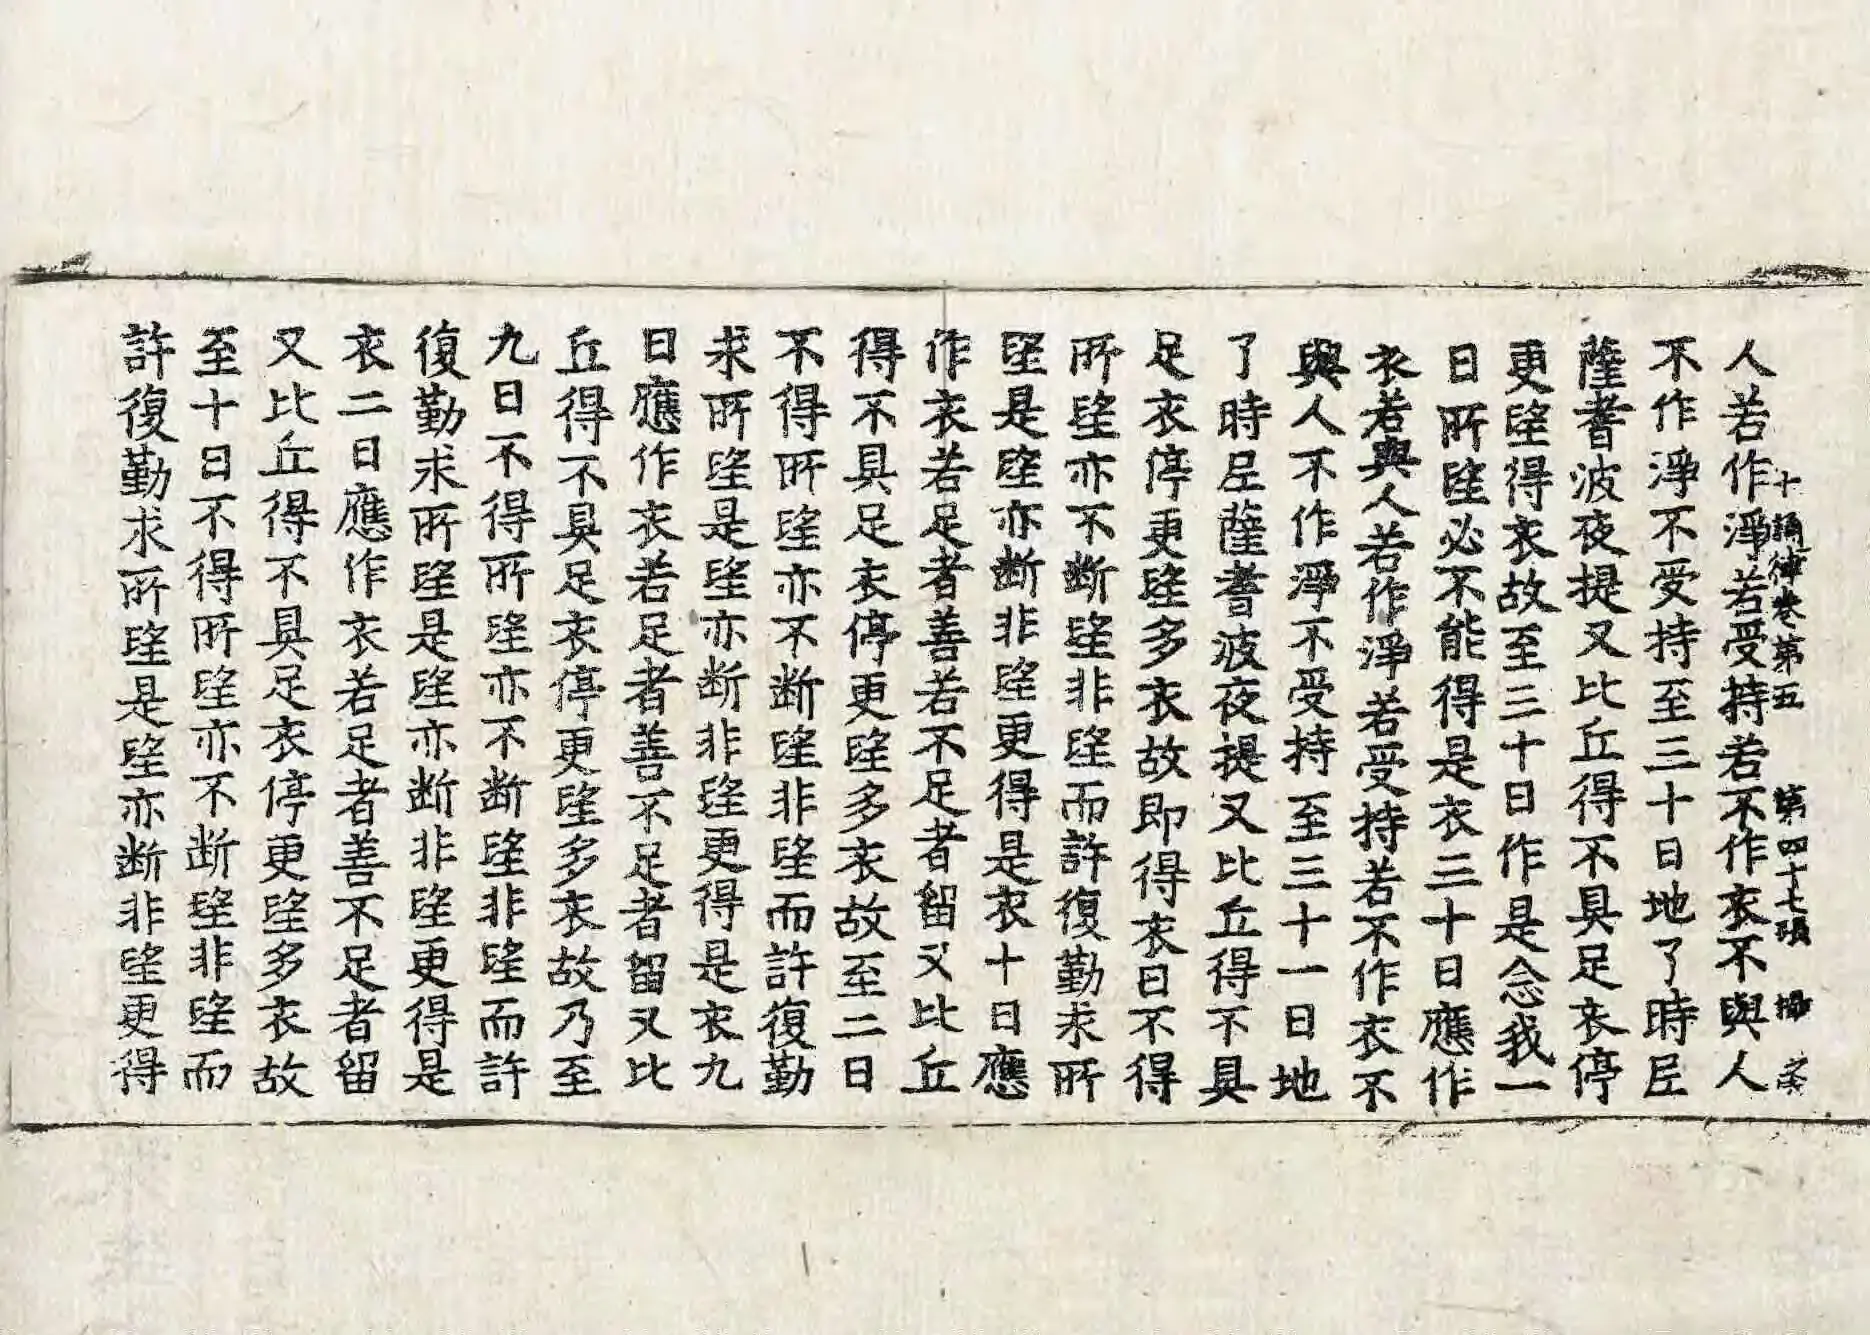 十誦律卷第五　第四十七張
人若作淨若受持若不作衣不與人
不作淨不受持至三十日地了時尼
薩耆波夜提又比丘得不具足衣停
更望得衣故至三十日作是念我一
日所望必不能得是衣三十日應作
衣若與人若作淨若受持若不作衣不
與人不作淨不受持至三十一日地
了時尼薩耆波夜提又比丘得不具
足衣停更望多衣故即得衣日不得
所望亦不断望非望而許復勤求所
望是望亦断非望更得是衣十日應
作衣若足者善若不足者留又比丘
得不具足衣停更望多衣故至二日
不得所望亦不断望非望而許復勤
求所望是望亦断非望更得是衣九
日應作衣若足者善不足者留又比
丘得不具足衣停更望多衣故乃至
九日不得所望亦不断望非望而許
復勤求所望是望亦断非望更得是
衣二日應作衣若足者善不足者留
又比丘得不具足衣停更望多衣故
至十日不得所望亦不断望非望而
許復勤求所望是望亦断非望更得